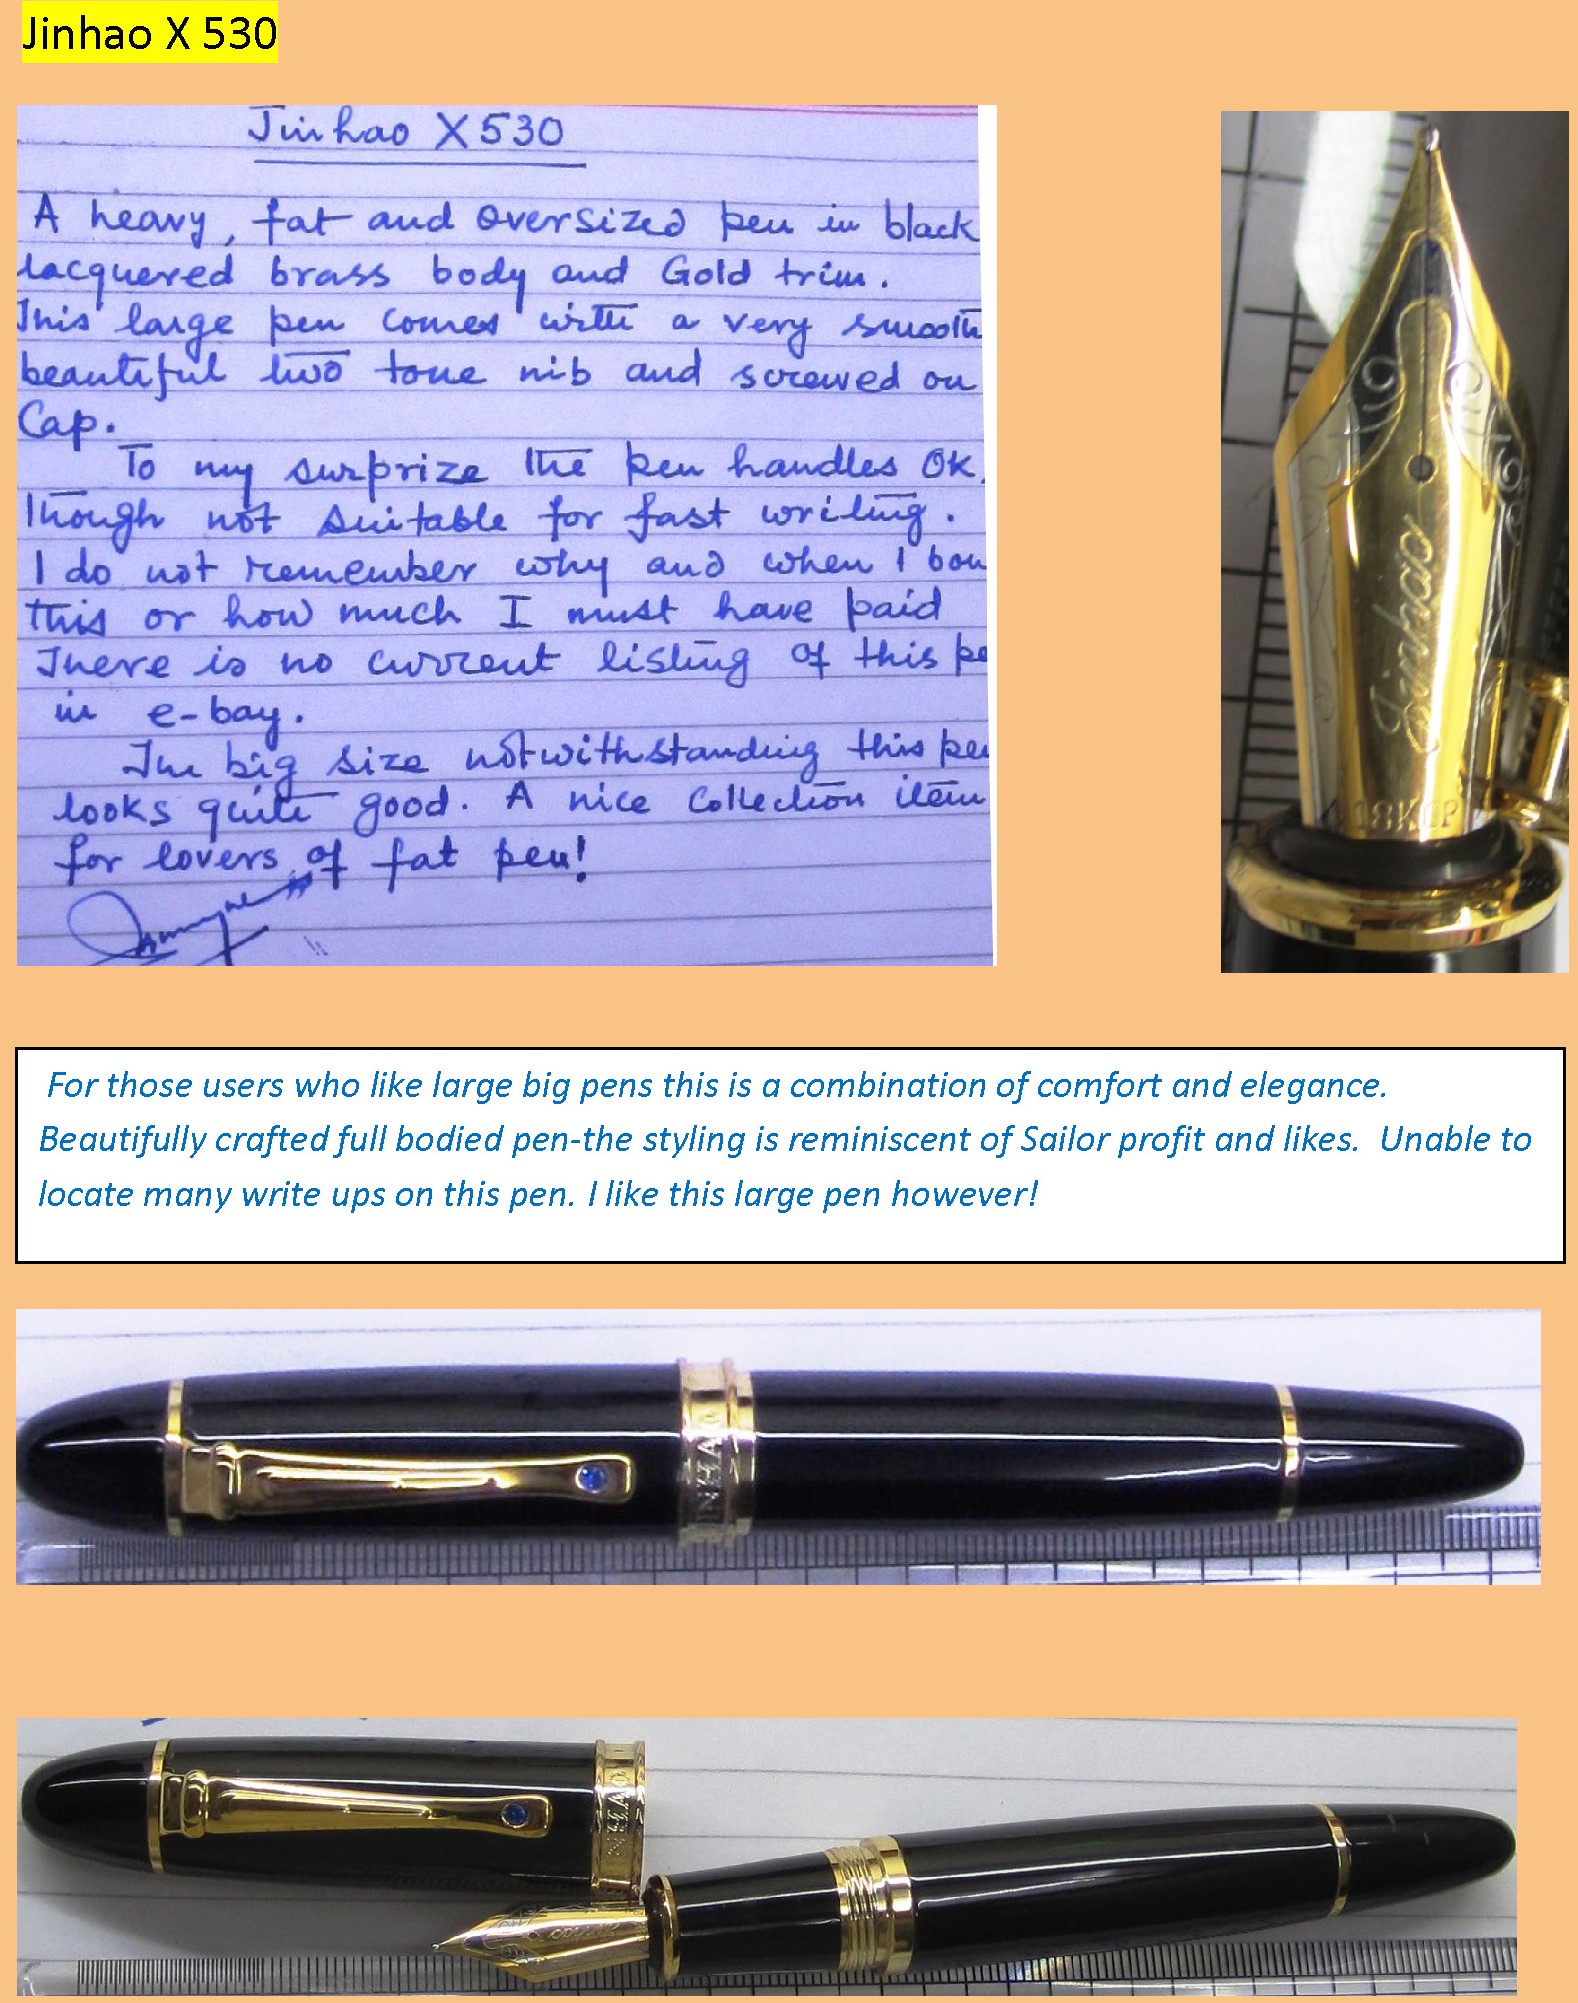 Jinhao X 530
Jinhao X530
A heavy, fat and oversized pen in black
lacquered brass body and Gold trim.
This large pen comes with a very smooth
beautiful two tone nib and screwed on
Cap.
To my surprize the pen handles OK.
Though not suitable for fast writing.
I do not remember why and when I bou
this or how much I must have paid
There is no current listing of this pe
in e-bay.
The big size notwithstanding this pen
looks quite good. A nice Collection item
for lovers of fat pen!
Jinhao
18KGP
For those users who like large big pens this is a combination of comfort and elegance.
Beautifully crafted full bodied pen-the styling is reminiscent of Sailor profit and likes.  Unable to
locate many write ups on this pen. I like this large pen however!
JINHAO
JINHAO